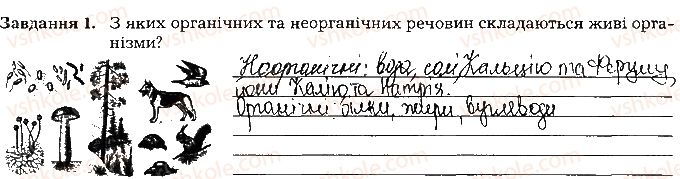 Завдання 1. З яких органічних та неорганічних речовин складаються живі орга-
нізми?
Неорганічні: вода, солі Кальцію та Феруму,
іони Калію та Натрія.
Органічні білки, жири, вуглеводи